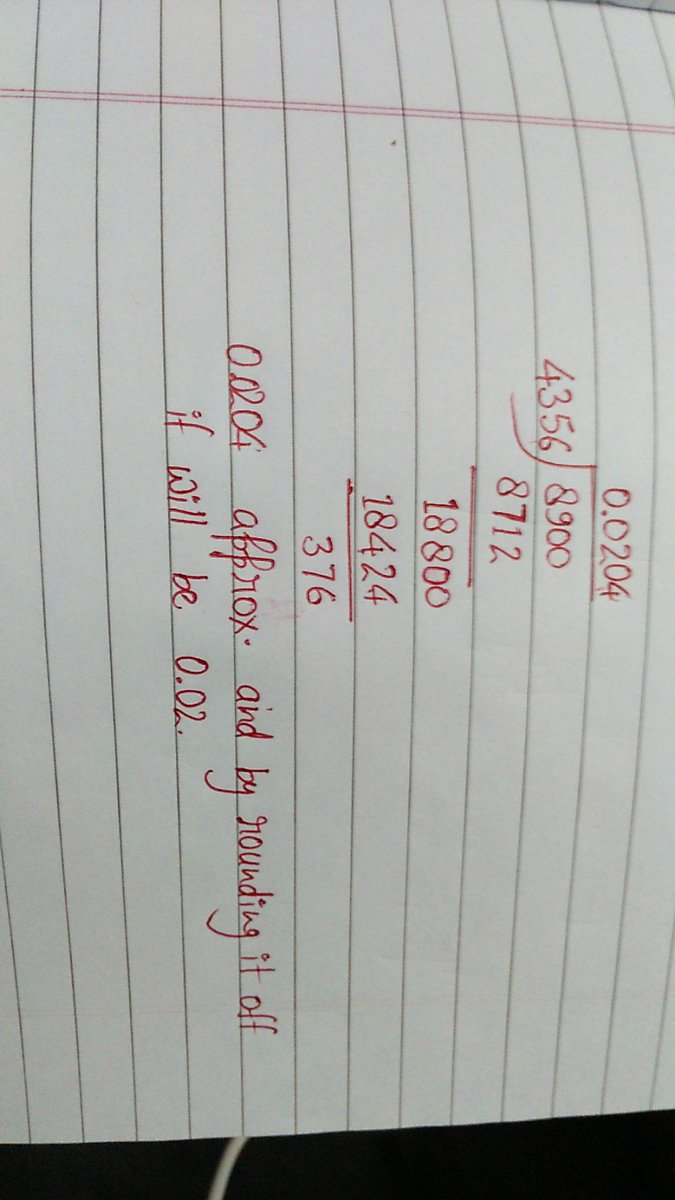 0.0204
4356 8900
8712
18800
18424
376
0.0204 approx. and by rounding it off
it will be 0.02.